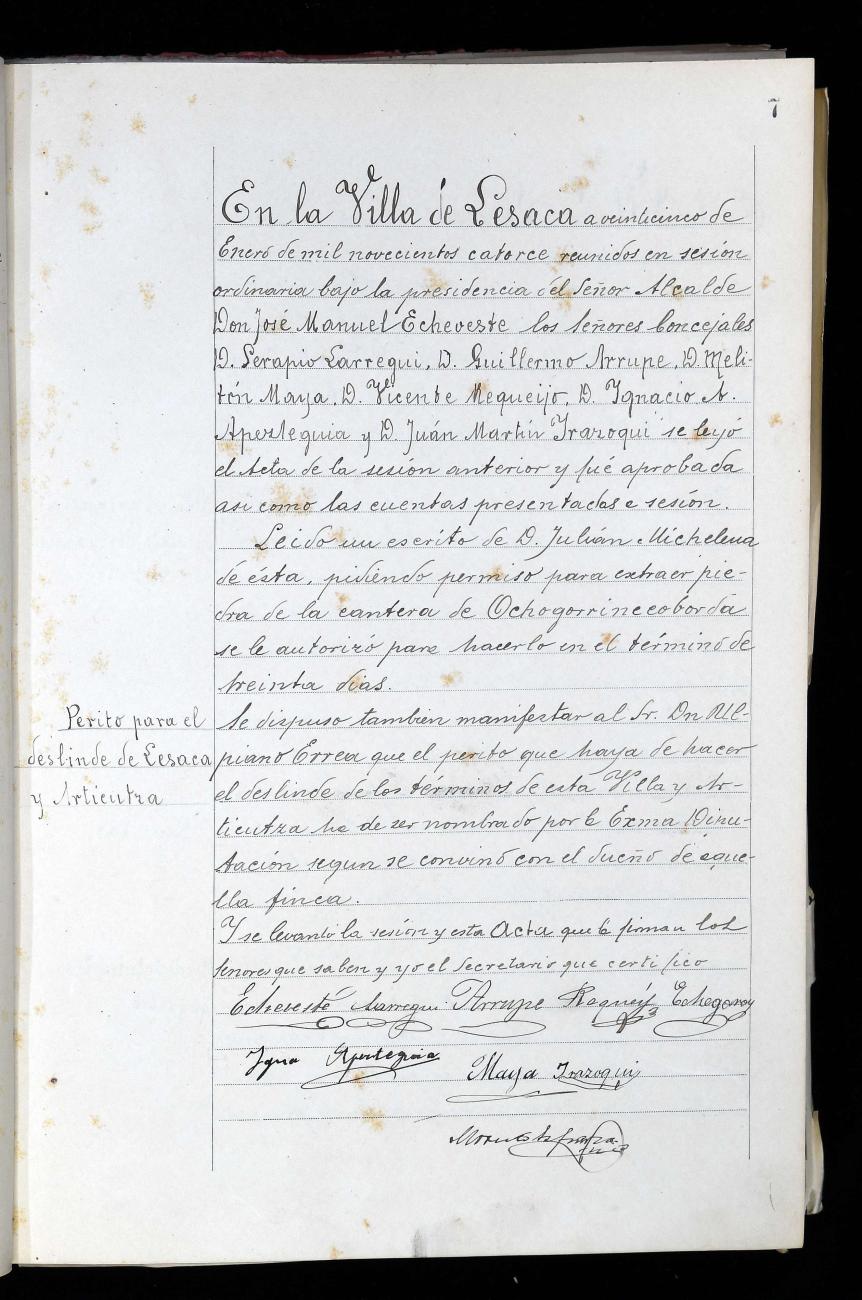 7
En la Villa de Lesaca a veinticinco de
Enero de mil novecientos catorce reunidos en sesión
ordinaria bajo la presidencia del Señor Alcalde
Don José Manuel Echeveste los señores Concejales
D. Serapio Larregui, D. Guillermo Arrupe, D. Meli-
tón Maya, D. Vicente Requeijo, D. Ignacio A.
Apezteguia y D. Juán Martín Irazoqui se leyó
el Acta de la sesión anterior y fué aprobada
asi como las cuentas presentadas a sesión.
Leido un escrito de D. Julián Michelena
de ésta, pidiendo permiso para extraer pie-
dra de la cantera de Ochogorrinecoborda
se le autorizó para hacerlo en el término de
treinta dias.
Perito para el
deslinde de Lesaca
y Articutza
Se dispuso tambien manifestar al Sr. Dn Ul-
piano Errea que el perito que haya de hacer
el deslinde de los términos de esta Villa y Ar-
ticutza ha de ser nombrado por la Exma Dipu-
tación segun se convino con el dueño de aque-
lla finca.
Y se levantó la sesión y esta Acta que la firman los
señores que saben y yo el Secretario que certifico
Echeveste Larregui Arrupe Requeij Echegaray
Igna Apezteguia
Maya Irazoqui